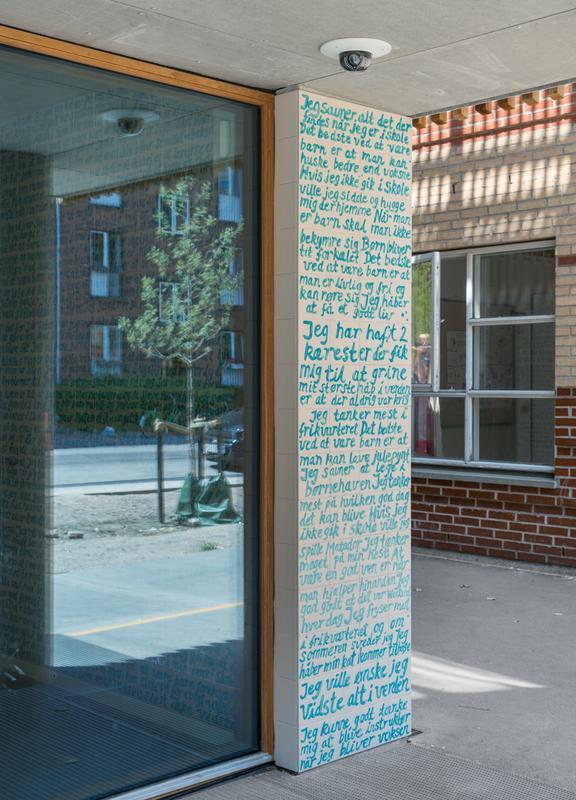 Jeg savner alt det, der
findes når jeg er i skole
Det bedste ved at være
barn er at man kan
huske bedre end voksne
Hvis jeg ikke gik i skole
ville jeg sidde og hygge
mig derhjemme Når man
er barn skal man ikke
bekymre sig Børn bliver
tit forkælet Det bedste
ved at være barn er at
man er livlig og fri og
kan røre sig Jeg håber
at få et godt liv
Jeg har haft 2
kærester der fik
mig til at grine
mit største håb i verden
er at der aldrig var krig
Jeg tænker mest i
frikvarteret Det bedste
ved at være barn er at
man kan lave julepynt
Jeg savner at lege i
børnehaven Jeg tænker
mest på hvilken god dag
det kan blive Hvis jeg
ikke gik i skole ville jeg
spille Matador Jeg tænker
meget på min hest At
være en god ven er når
man hjælper hinanden Jeg
god godt at det var
hver dag Jeg fryser mest
i frikvarteret og om
sommeren sveder jeg Jeg
håber min kat kommer tilbage
Jeg ville ønske jeg
Vidste alt i verden
Jeg kunne godt tænke
mig at blive instruktør
når jeg bliver voksen